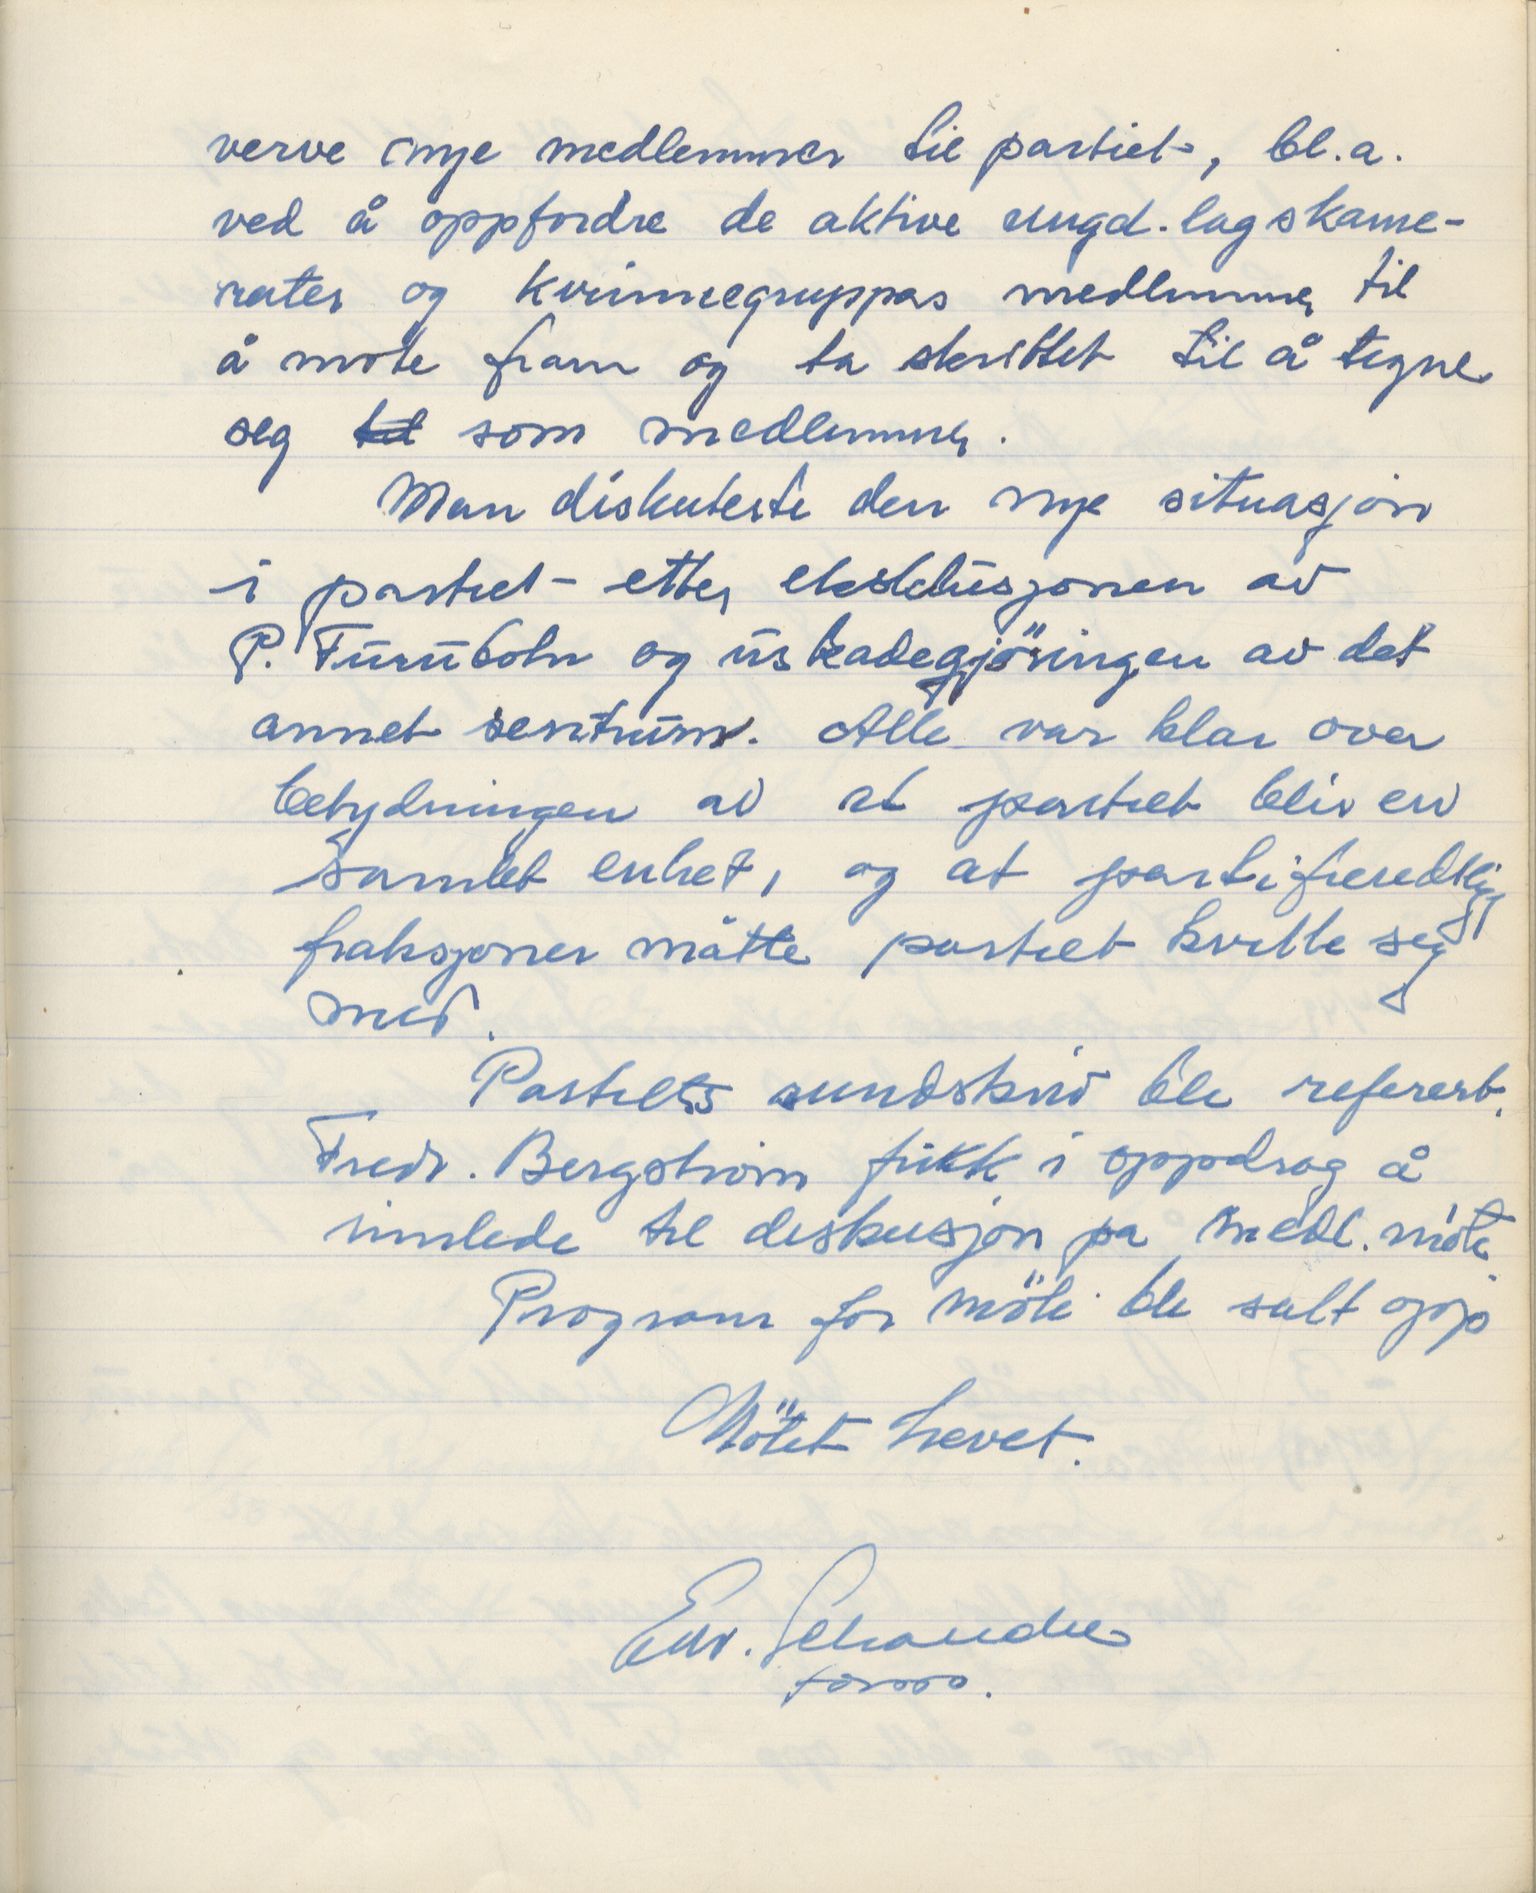 verve nye medlemmer til partiet, bl.a.
ved å oppfordre de aktive ungd.lagskame-
rater og kvinnegruppas medlemmer til
å møte fram og ta skrittet til å tegne
seg som medlemmer.
Man diskuterte den nye situasjon
i partiet etter eksklusjonen av
P. Furubotn og uskadegjöringen av det
annet sentrum. Alle var klar over
betydningen av at partiet blir en
samlet enhet, og at partifiendtlig
fraksjoner måtte partiet kvitte seg
med.
Partiets rundskriv ble referert.
Fredr. Bergström fikk i oppdrag å
innlede til diskusjon på medl. möte
Program for möte ble satt opp
Mötet hevet.